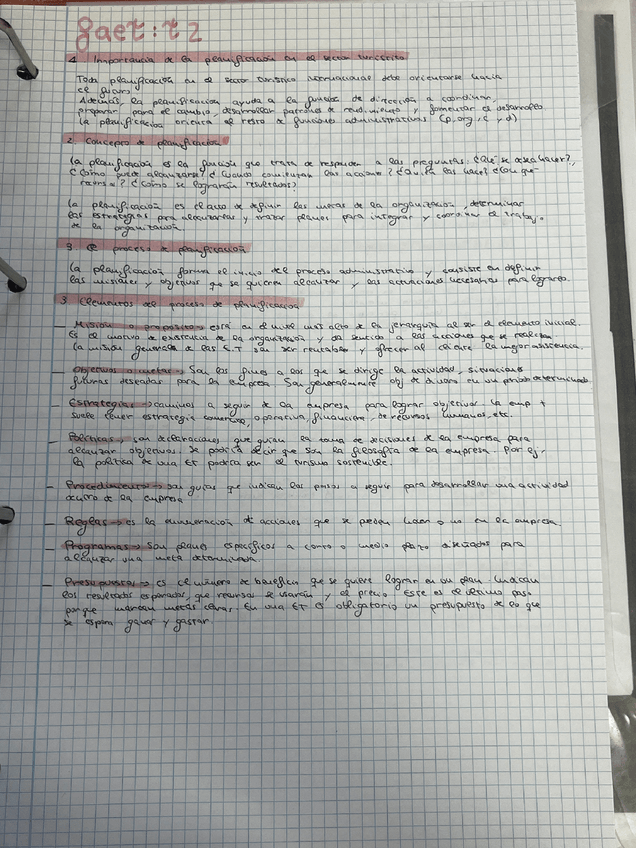 gaet: t2
1. Importancia de la planificación en el sector turístico
Toda planificación en el sector turístico internacional debe orientarse hacia
el futuro.
Además, la planificación ayuda a la función de dirección a coordinar,
preparar para el cambio, desarrollar patrones de rendimiento y fomentar el desarrollo
la planificación orienta el resto de funciones administrativas (p, org, c y d)
2. Concepto de planificación
La planificación es la función que trata de responder a las preguntas: ¿Qué se desea hacer?,
¿Cómo puede alcanzarse? ¿Cuándo comienzan las acciones? ¿Quién las hace? ¿Con qué
recursos? ¿Cómo se lograrán resultados?
La planificación es el acto de definir las metas de la organización, determinar
las estrategias para alcanzarlas y trazar planes para integrar y coordinar el trabajo
de la organización.
3 El proceso de planificación
La planificación forma el inicio del proceso administrativo y consiste en definir
las misiones y objetivos que se quieren alcanzar y las actuaciones necesarias para lograrlo.
3 Elementos del proceso de planificación
- Misión o propósito → está en el nivel más alto de la jerarquía al ser el elemento inicial.
Es el motivo de existencia de la organización y da sentido a las acciones que se realizan
La misión general de las E.T son ser rentables y ofrecer al cliente la mejor asistencia.
- Objetivos o metas → Son los fines a los que se dirige la actividad, situaciones
futuras deseadas para la empresa. Son generalmente obj de dinero en un periodo determinado.
- Estrategias → caminos a seguir de la empresa para lograr objetivos. La emp t
suele tener estrategia comercial, operativa, financiera, de recursos humanos, etc.
- Políticas → son declaraciones que guían la toma de decisiones de la empresa para
alcanzar objetivos. Se podría decir que son la filosofía de la empresa. Por ej,
la política de una ET podría ser el turismo sostenible.
- Procedimientos → son guías que indican los pasos a seguir para desarrollar una actividad
dentro de la empresa
- Reglas → es la enumeración de acciones que se pueden hacer o no en la empresa.
- Programas → Son planes específicos a corto o medio plazo diseñados para
alcanzar una meta determinada.
- Presupuestos → es el número de beneficio que se quiere lograr en un plan. Indican
los resultados esperados, que recursos se usarán y el precio. Este es el último paso
porque marcan metas claras. En una ET es obligatorio un presupuesto de lo que
se espera ganar y gastar.